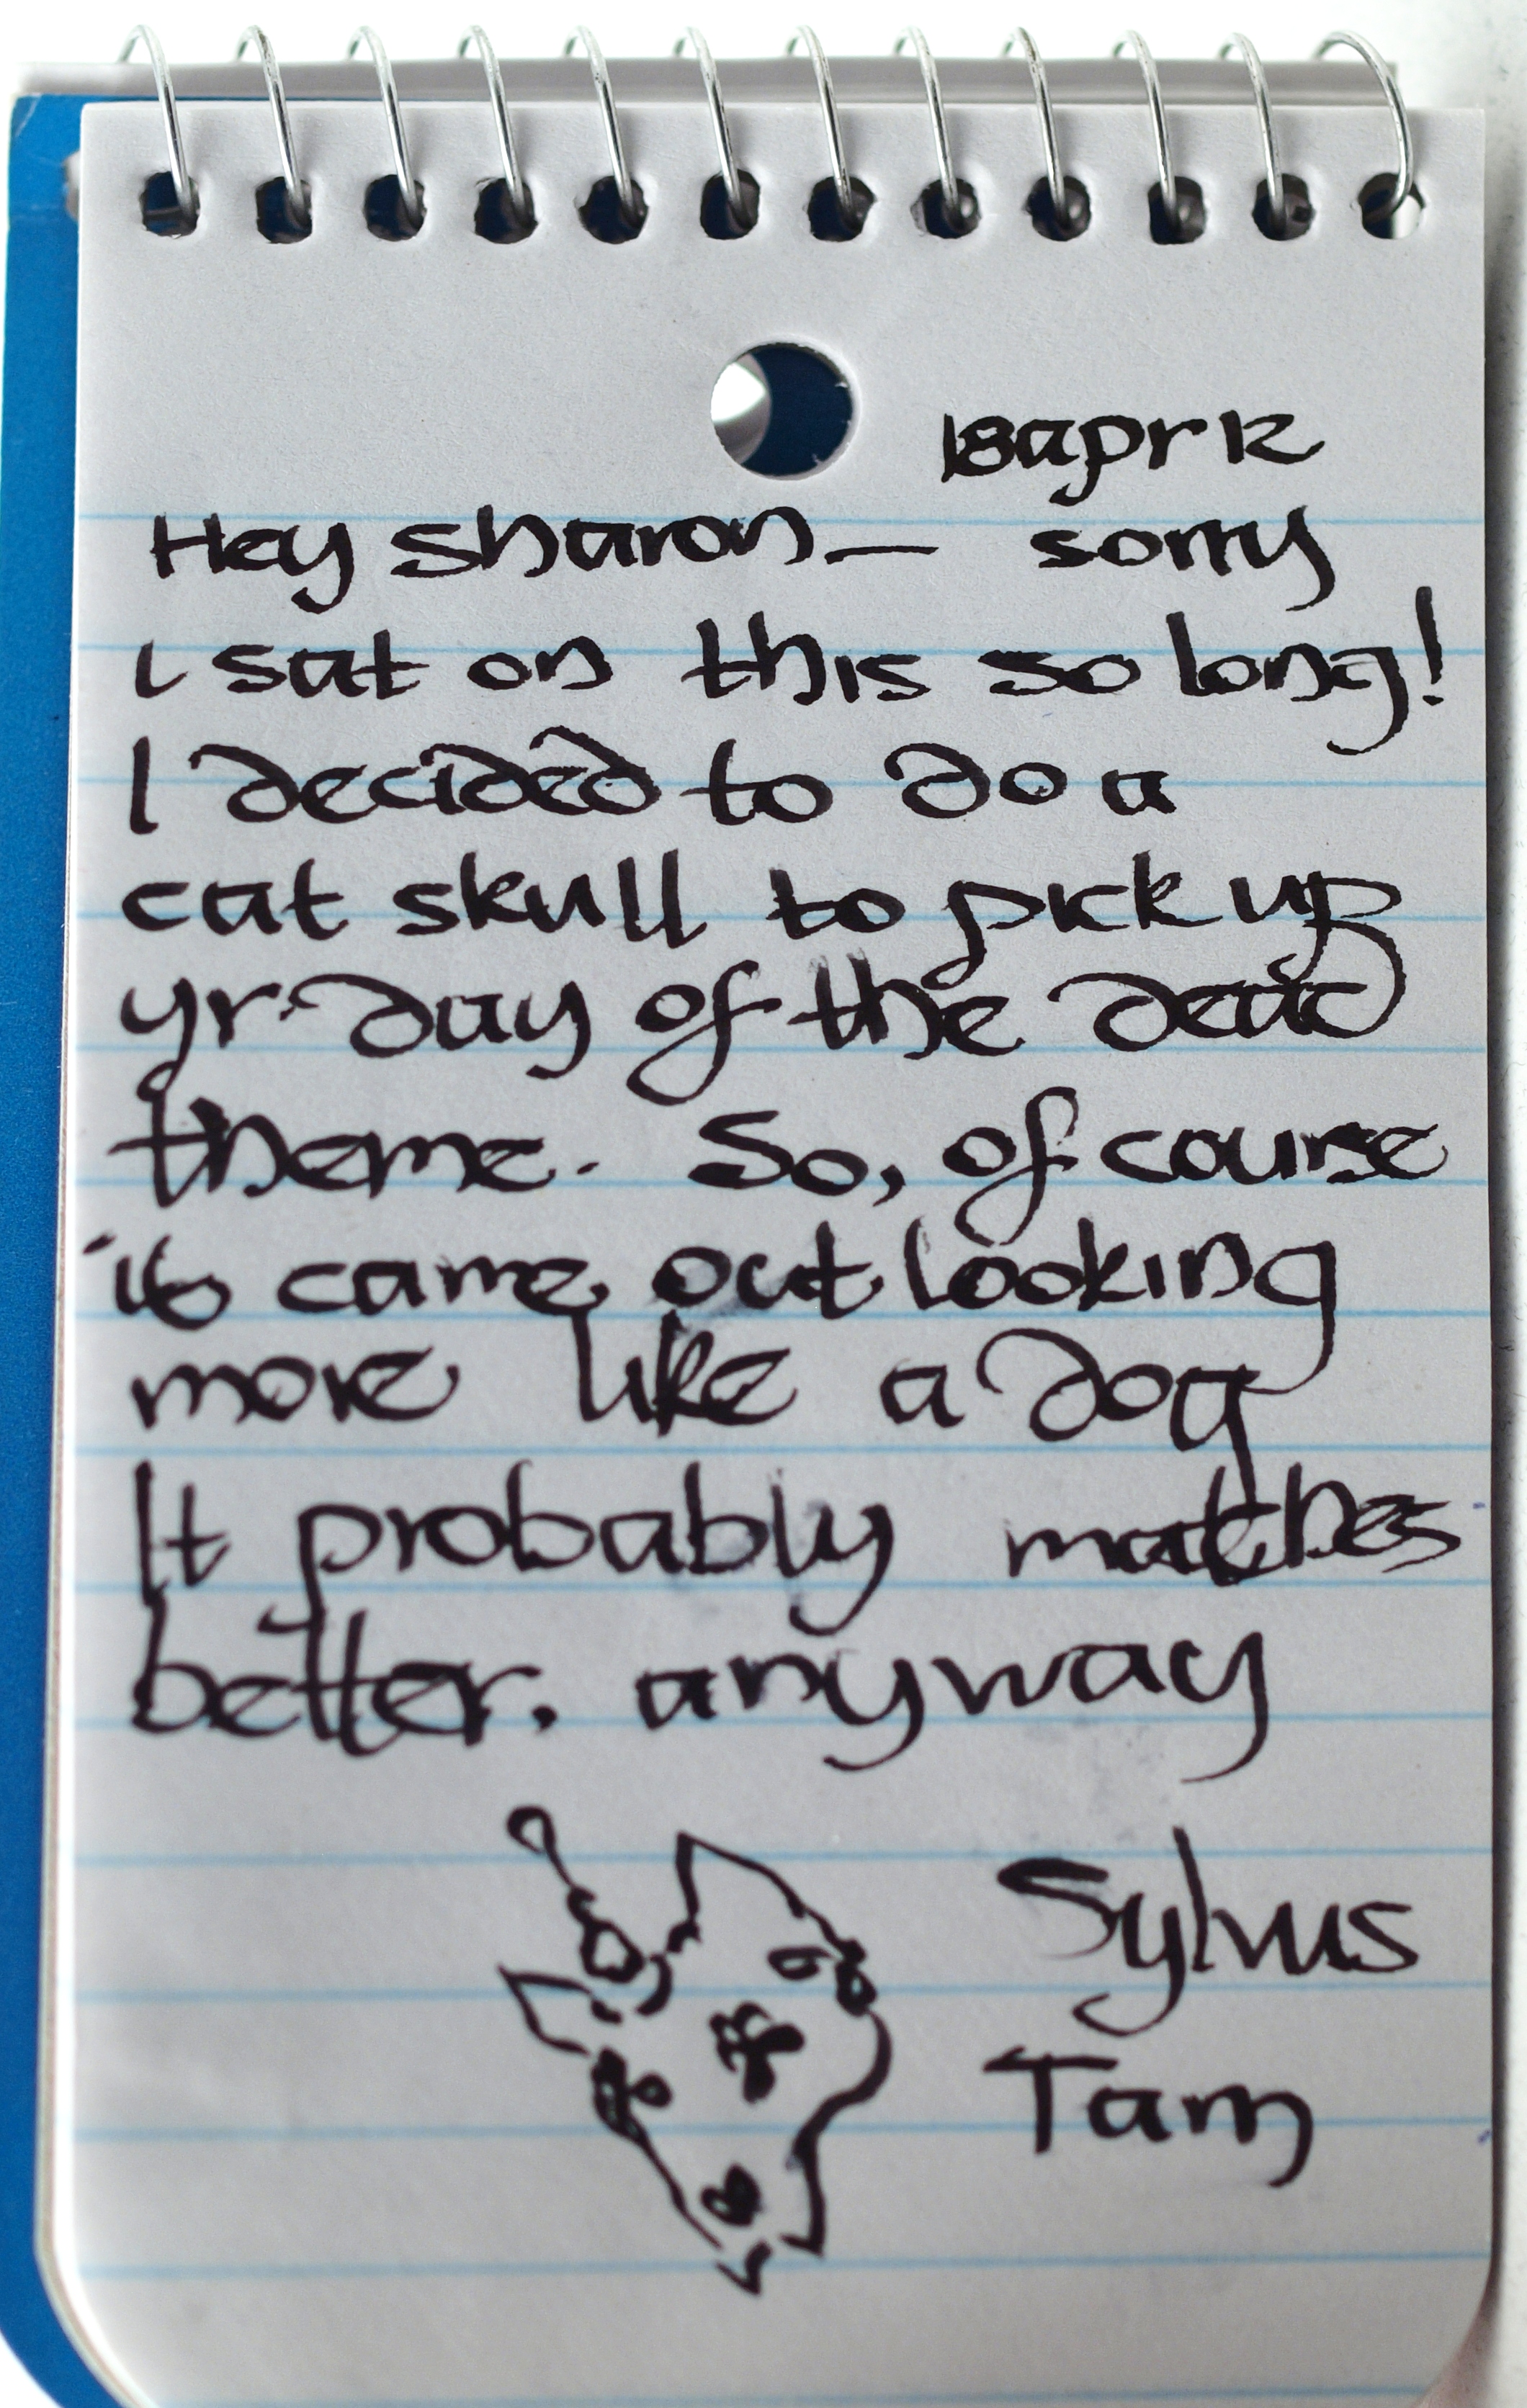 18apr12
Hey Sharon— sorry
I sat on this so long!
I decided to do a
cat skull to pick up
yr day of the dead
theme. So, of course
it came out looking
more like a dog
It probably matches
better. anyway
Sylvus
Tam